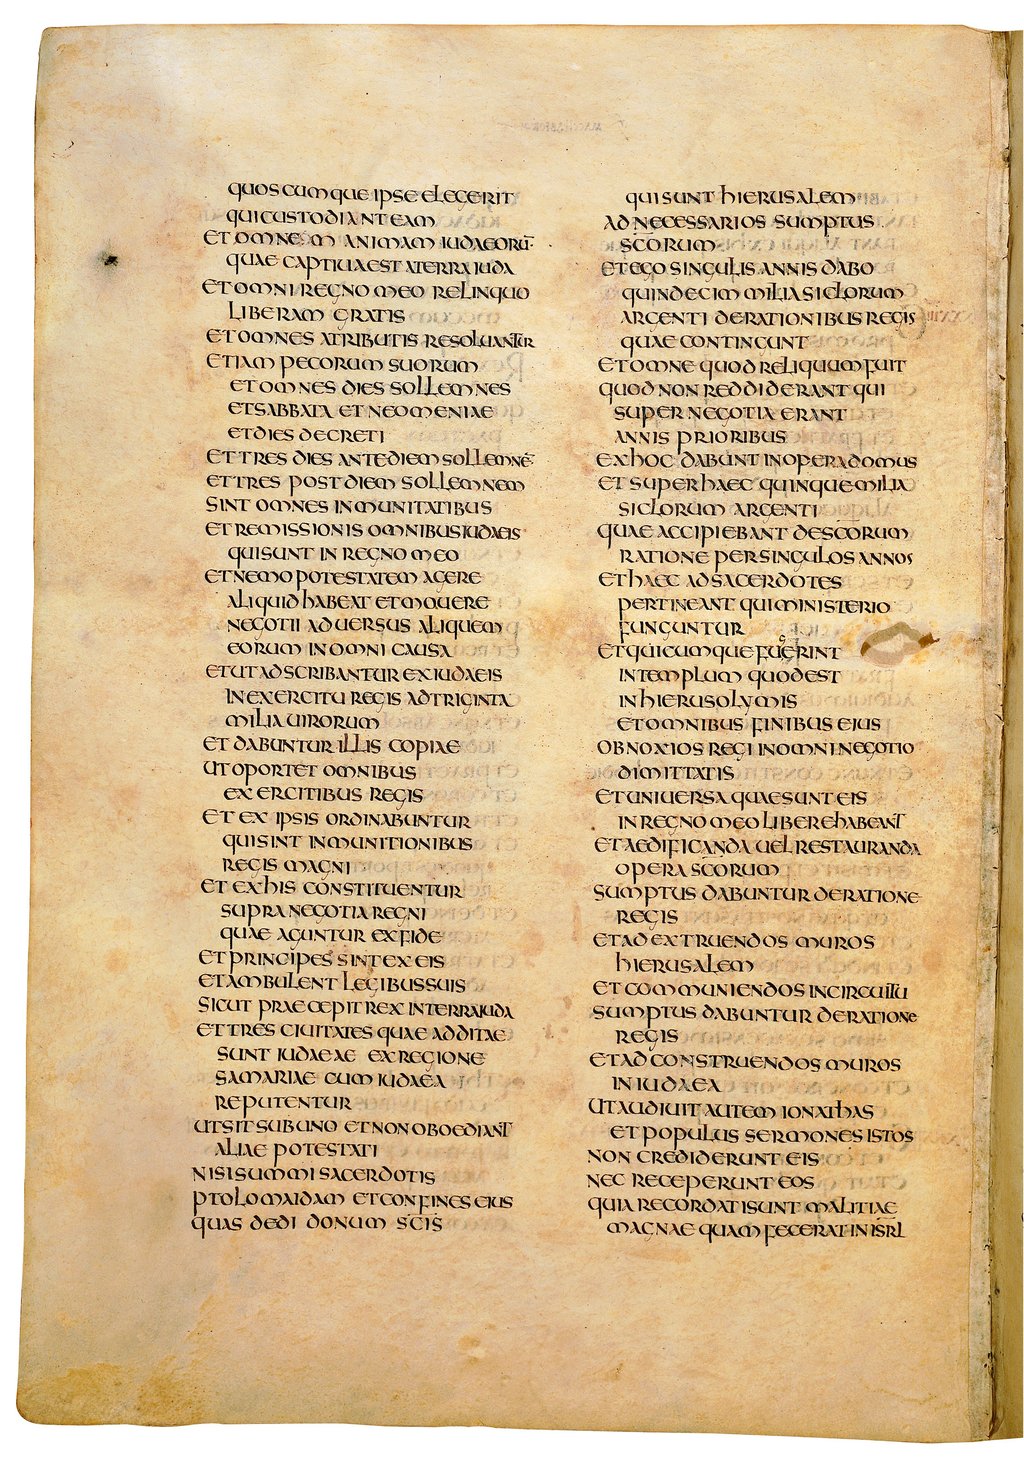 quoscumque ipse elegerit
qui custodiant eam
et omnem animam iudaeorū·
quae captiua est a terra iuda
et omni regno meo relinquo
liberam gratis
et omnes a tributis resoluantur
etiam pecorum suorum
et omnes dies sollemnes
et sabbata et neomeniae
et dies decreti
et tres dies ante diem sollemnē·
et tres post diem sollemnem
sint omnes inmunitatibus
et remissionis omnibus iudaeis
qui sunt in regno meo
et nemo potestatem agere
aliquid habeat et mouere
negotii aduersus aliquem
eorum in omni causa
et ut adscribantur ex iudaeis
in exercitu regis ad triginta
milia uirorum
et dabuntur illis copiae
ut oportet omnibus
exercitibus regis
et ex ipsis ordinabuntur
qui sint in munitionibus
regis magni
et ex his constituentur
supra negotia regni
quae aguntur ex fide
et principes sint ex eis
et ambulent legibus suis
sicut praecepit rex in terra iuda
et tres ciuitates quae additae
sunt iudaeae ex regione
samariae cum iudaea
reputentur
ut sit sub uno et non oboediant
aliae potestati
nisi summi sacerdotis
ptolomaidam et confines eius
quas dedi donum sc̄is
qui sunt hierusalem
ad necessarios sumptus
sc̄orum
et ego singulis annis dabo
quindecim milia siclorum
argenti de rationibus regis
quae contingunt
et omne quod reliquum fuit
quod non reddiderant qui
super negotia erant
annis prioribus
ex hoc dabunt in opera domus
et super haec quinque milia
siclorum argenti
quae accipiebant de sc̄orum
ratione per singulos annos
et haec ad sacerdotes
pertineant qui ministerio
funguntur
et quicumque fugerint
in templum quod est
in hierusolymis
et omnibus finibus eius
obnoxios regi in omni negotio
dimittatis
et uniuersa quae sunt eis
in regno meo libere habeant
et aedificanda uel restauranda
opera sc̄orum
sumptus dabuntur de ratione
regis
et ad extruendos muros
hierusalem
et communiendos in circuitu
sumptus dabuntur de ratione
regis
et ad construendos muros
in iudaea
ut audiuit autem ionathas
et populus sermones istos
non crediderunt eis
nec receperunt eos
quia recordati sunt malitiae
magnae quam fecerat in isr̄l